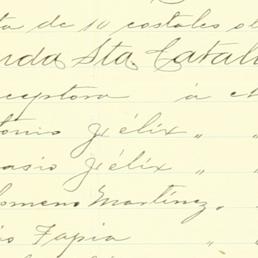 ta de 10 costales de
nda Sta. Catal
ceptora á
tonio Félix " "
nasio Félix " "
lomeno Martínez, "
io Tapia "